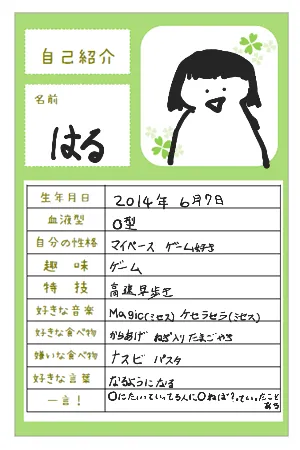 自己紹介
名前
はる
生年月日 2014年 6月7日
血液型 O型
自分の性格 マイペース ゲーム好き
趣味 ゲーム
特技 高速早歩き
好きな音楽 Magic(ミセス) ケセラセラ(ミセス)
好きな食べ物 からあげ ねぎ入りたまごやき
嫌いな食べ物 ナスビ パスタ
好きな言葉 なるようになる
一言! 〇にたいっていってる人に〇ねば?っていったこと
ある